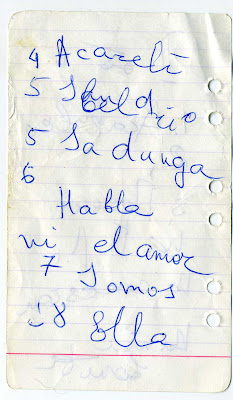 4
5
5 Sadunga
6
Habla
ni el amor
7 Somos
8 Ella